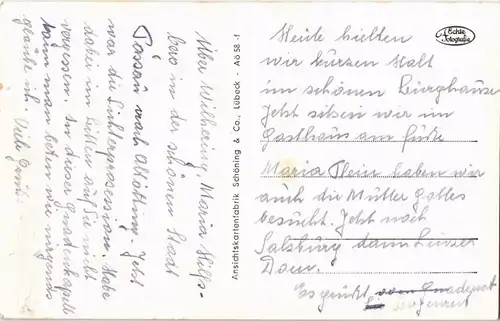 Über Wilhering, Maria Hilf-
berg in der schönen Stadt
Passau nach Altötting. Jetzt
war die Lichterprozession. Habe
dabei im Beten auf Sie nicht
vergessen. In dieser Gnadenkapelle
kann man beten wie nirgends
glaube ich. Viele
Ansichtskartenfabrik Schöning & Co., Lübeck · Aö 58-1
Echte Fotografie
Heute hielten
wir kurzen Halt
im schönen Burghausen
Jetzt sitzen wir im
Gasthaus am Fuße
Maria haben wir
auch die Mutter Gottes
besucht. Jetzt noch
Salzburg dann Linzer
Dom.
Es grüßt